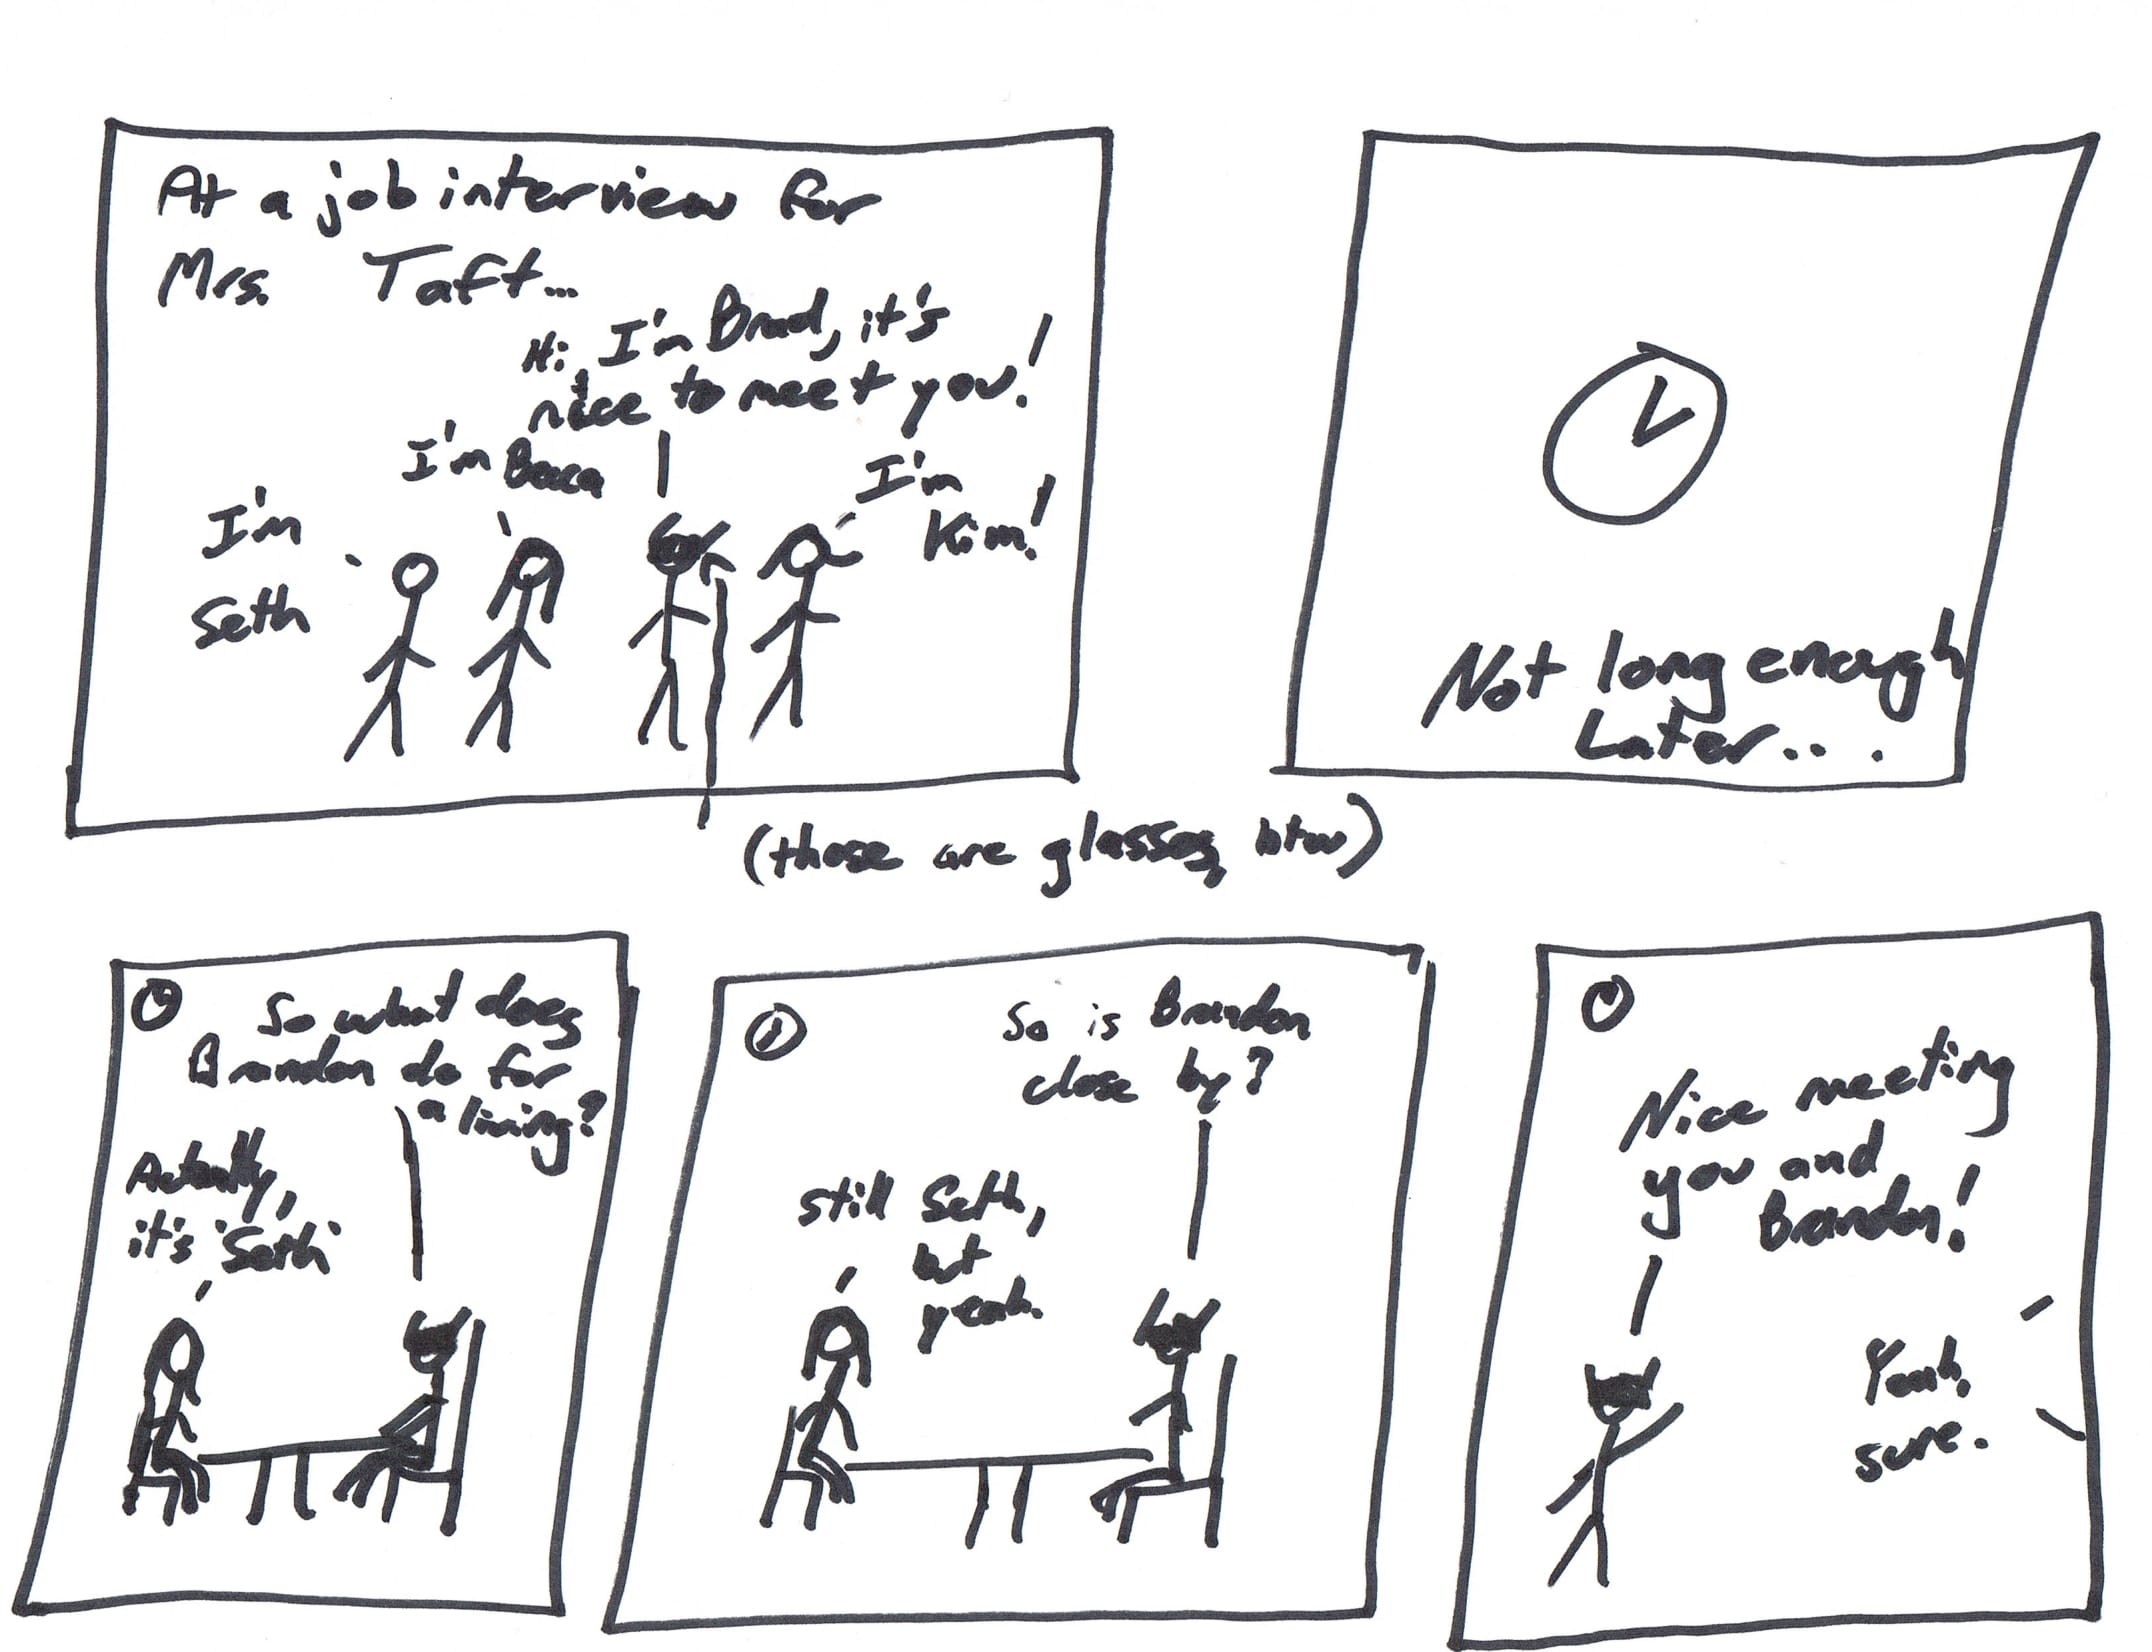 At a job interview for
Mrs. Taft...
Hi, I'm Brad, it's
nice to meet you!
I'm Becca
I'm
Kim!
I'm
Seth
Not long enough
Later...
(those are glasses, btw)
So what does
Brandon do for
a living?
Actually,
it's "Seth"
So is Brandon
close by?
Still Seth,
but
yeah.
Nice meeting
you and
Brandon!
Yeah,
sure.